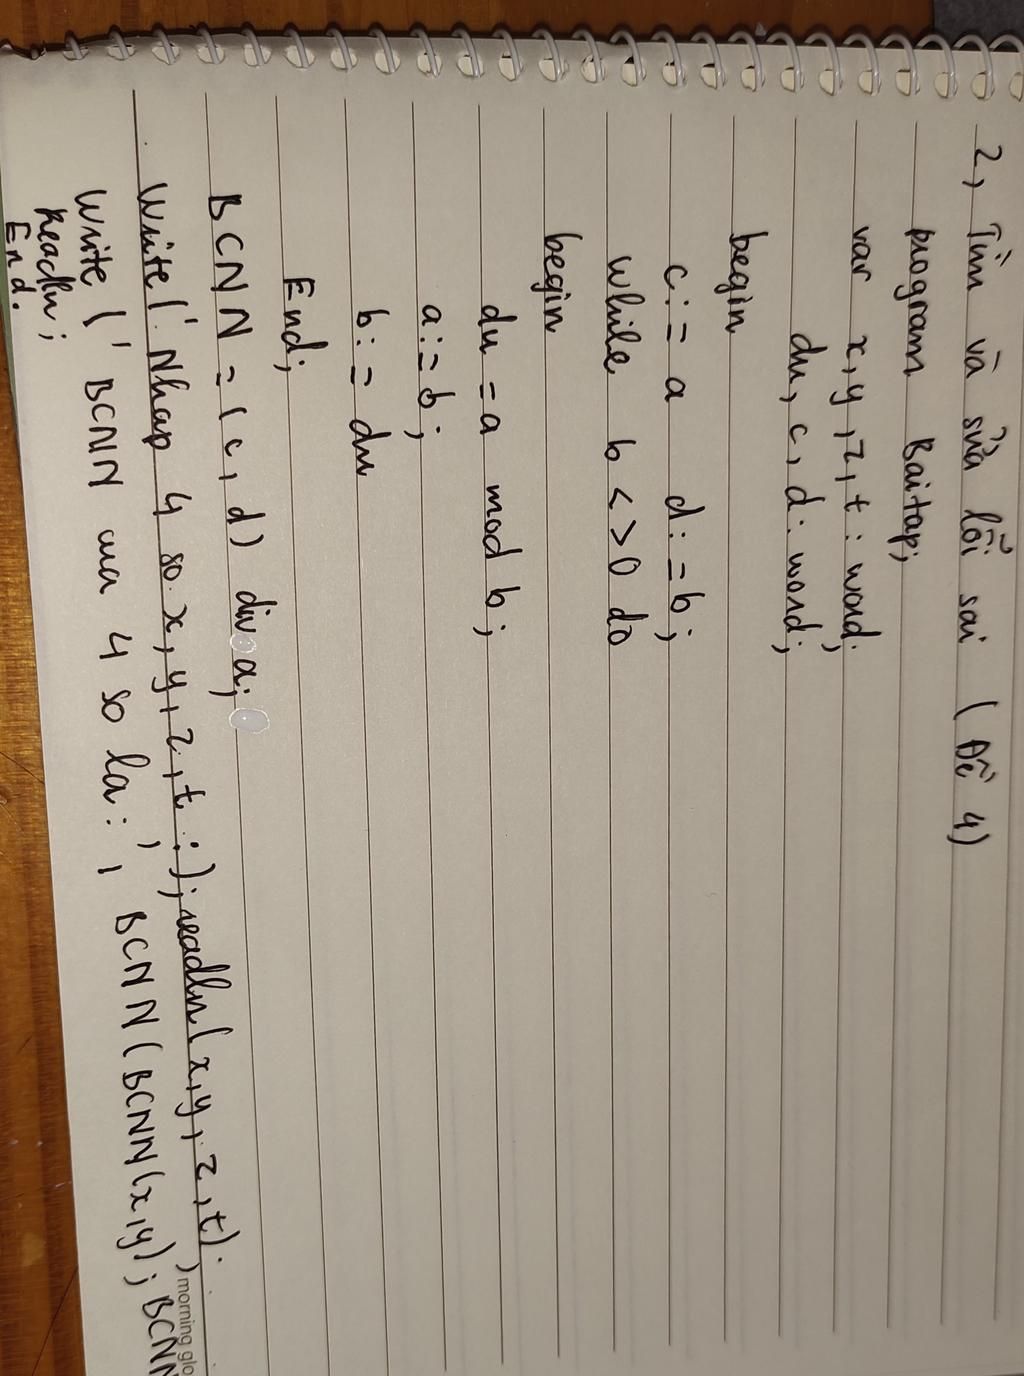 2, Tìm và sửa lỗi sai ( Đề 4)
program Baitap;
var x, y, z, t : word;
du, c, d : word;
begin
c := a d := b;
while b <> 0 do
begin
du = a mod b;
a := b;
b := du
End;
BCNN = ( c, d ) div a;
Write (' Nhap 4 so x, y, z, t : '); readln ( x, y, z, t );
Write ( ' BCNN cua 4 so la : , BCNN ( BCNN (x, y) ; BCNN
Readln ;
End.
morning glo